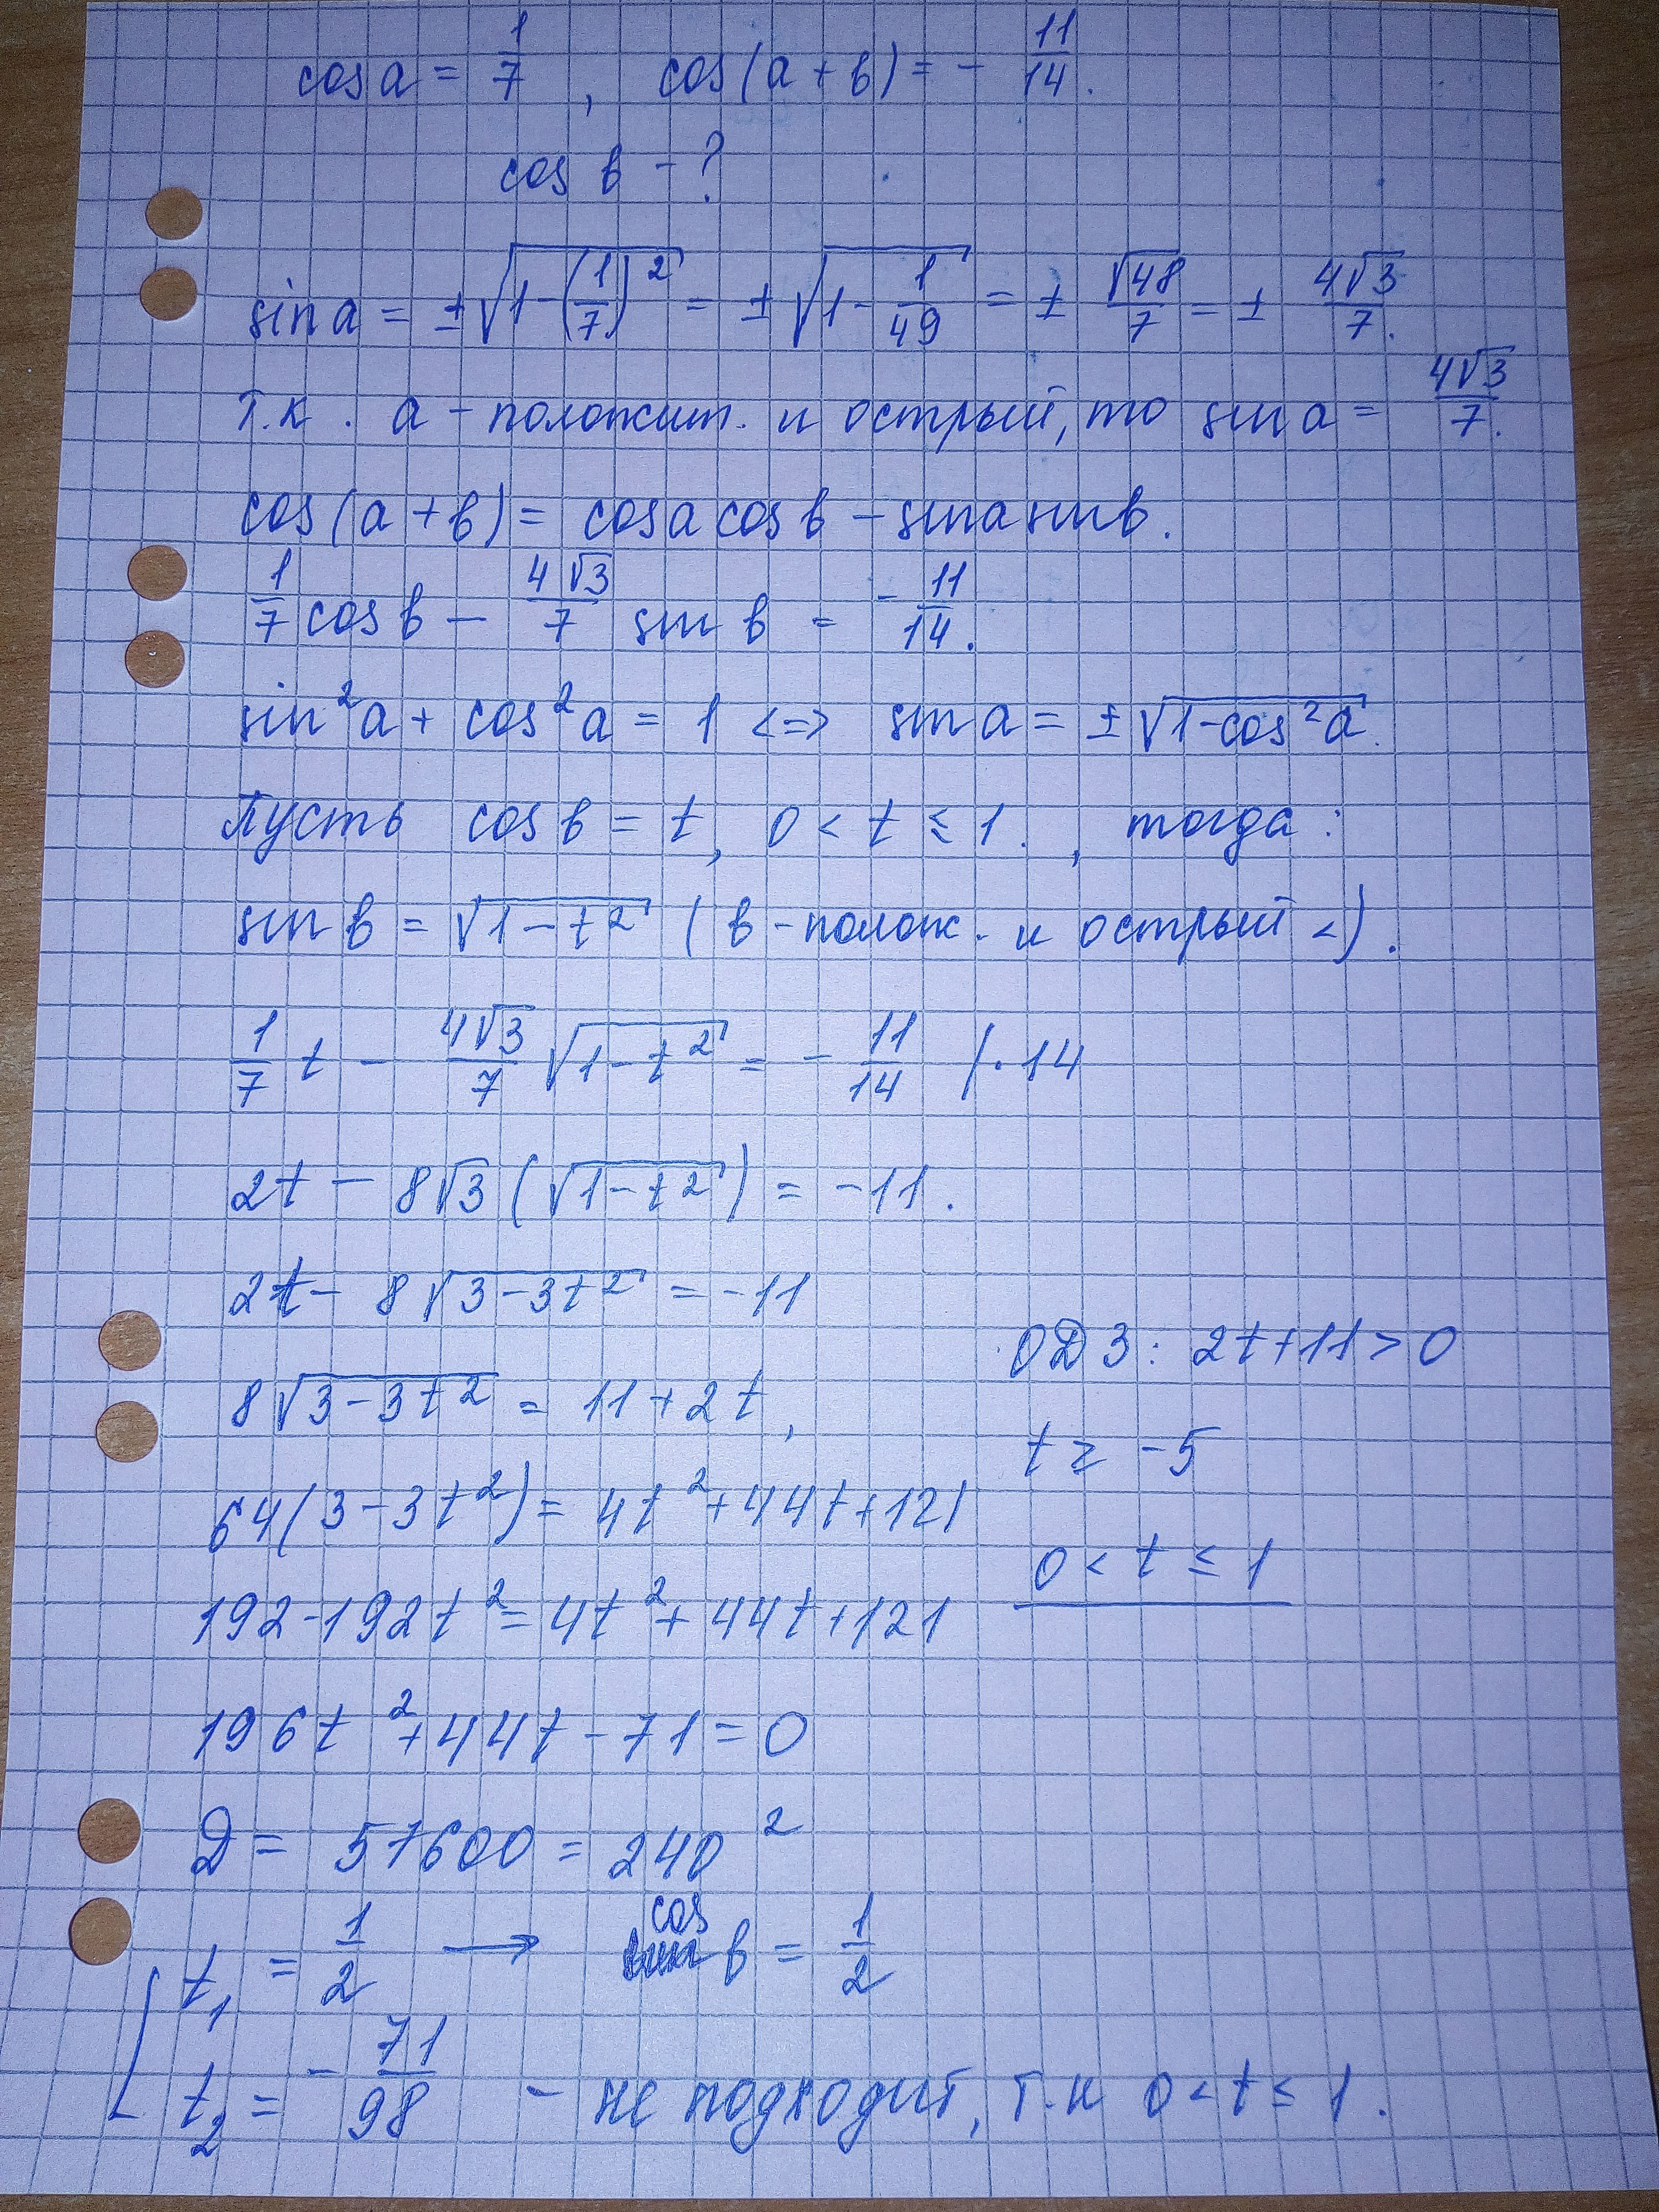 cos a = 1/7, cos(a + b) = - 11/14.
cos b - ?
sin a = ±√(1-(1/7)²) = ±√(1 - 1/49) = ± √48/7 = ± 4√3/7.
т.к. a - положит. и острый, то sin a = 4√3/7.
cos(a + b) = cos a cos b - sin a sin b.
1/7 cos b - 4√3/7 sin b = - 11/14.
sin²a + cos²a = 1 <=> sin a = ±√(1-cos²a).
Пусть cos b = t, 0 < t ≤ 1., тогда:
sin b = √(1-t²) (b - полож. и острый <).
1/7 t - 4√3/7 √(1-t²) = - 11/14 /·14
2t - 8√3 (√(1-t²)) = -11.
2t - 8√(3-3t²) = -11
8√(3-3t²) = 11 + 2t,
64(3-3t²) = 4t² + 44t + 121
192-192t² = 4t² + 44t + 121
196t² + 44t - 71 = 0
D = 57600 = 240²
t₁ = 1/2 → cos b = 1/2
t₂ = - 71/98 - не подходит, т.к 0 < t ≤ 1.
ОДЗ: 2t+11 > 0
t ≥ -5
0 < t ≤ 1